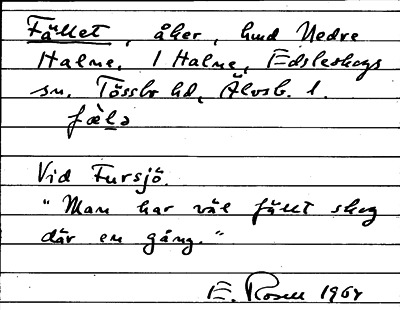 Fället, åker, hmd Nedre
Halme, 1 Halme, Edsleskogs
sn. Tössbo hd, Älvsb. l.
fälə
Vid Fursjö.
"Man har väl fällt skog
där en gång."
E. Rosell 1964